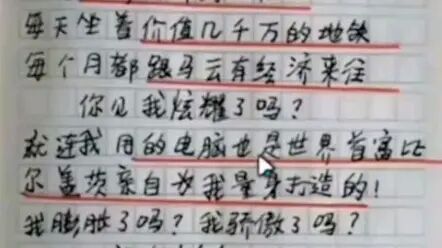 每天坐着价值几千万的地铁
每个月都跟马云有经济来往
你见我炫耀了吗?
就连我用的电脑也是世界首富比
尔盖茨亲自为我量身打造的!
我膨胀了吗?我骄傲了吗?